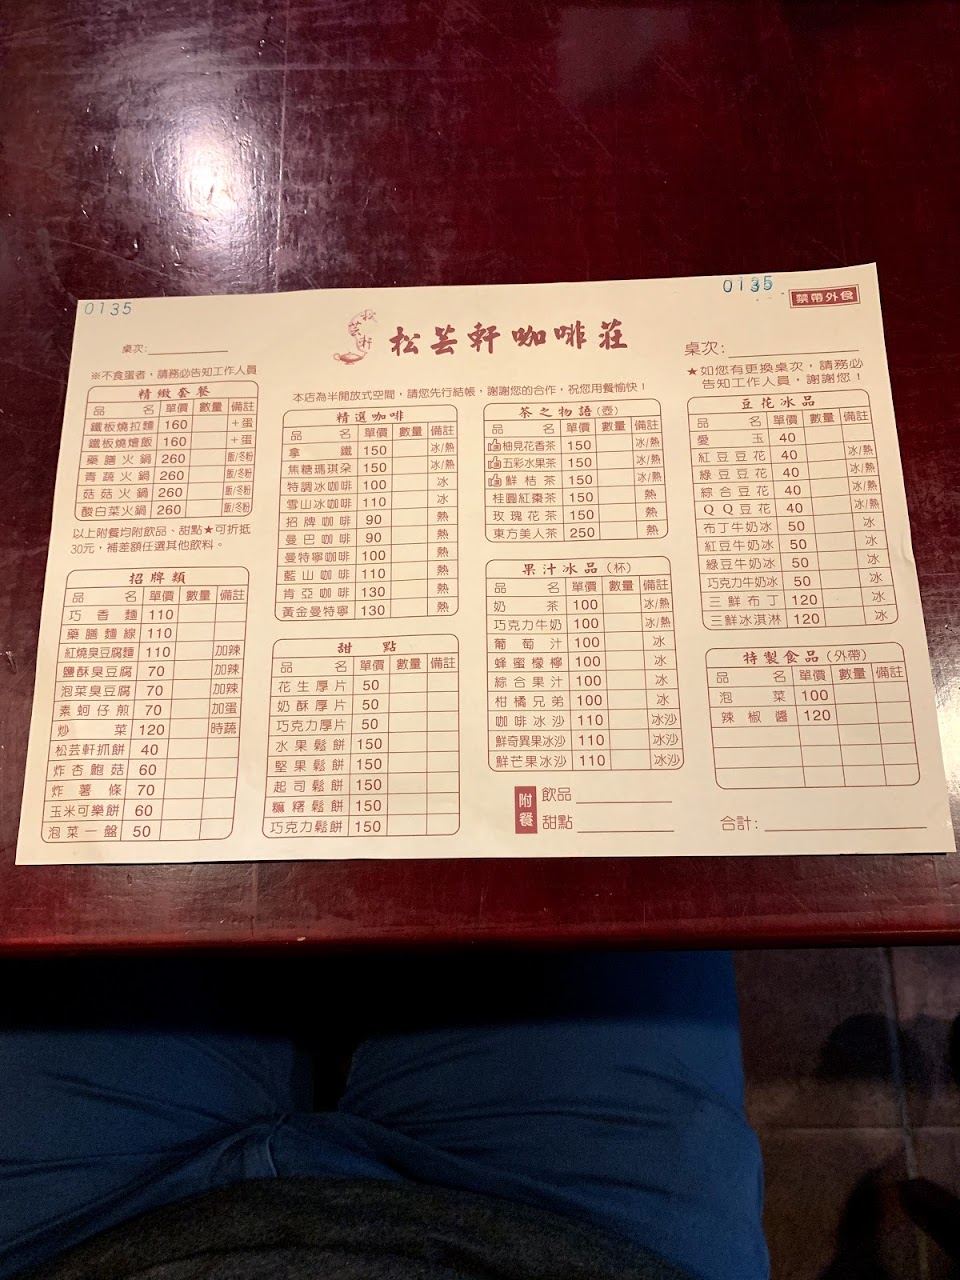 0135
0135
禁帶外食
松芸軒
松芸軒咖啡莊
桌次:
桌次:
※不食蛋者，請務必告知工作人員
★如您有更換桌次，請務必
告知工作人員，謝謝您！
本店為半開放式空間，請您先行結帳，謝謝您的合作，祝您用餐愉快！
精緻套餐
品名 單價 數量 備註
鐵板燒拉麵 160 +蛋
鐵板燒燴飯 160 +蛋
藥膳火鍋 260 飯/冬粉
青蔬火鍋 260 飯/冬粉
菇菇火鍋 260 飯/冬粉
酸白菜火鍋 260 飯/冬粉
以上附餐均附飲品、甜點★可折抵
30元，補差額任選其他飲料。
招牌類
品名 單價 數量 備註
巧香麵 110
藥膳麵線 110
紅燒臭豆腐麵 110 加辣
鹽酥臭豆腐 70 加辣
泡菜臭豆腐 70 加辣
素蚵仔煎 70 加蛋
炒菜 120 時蔬
松芸軒抓餅 40
炸杏鮑菇 60
炸薯條 70
玉米可樂餅 60
泡菜一盤 50
精選咖啡
品名 單價 數量 備註
拿鐵 150 冰/熱
焦糖瑪琪朵 150 冰/熱
特調冰咖啡 100 冰
雪山冰咖啡 110 冰
招牌咖啡 90 熱
曼巴咖啡 90 熱
曼特寧咖啡 100 熱
藍山咖啡 110 熱
肯亞咖啡 130 熱
黃金曼特寧 130 熱
甜點
品名 單價 數量 備註
花生厚片 50
奶酥厚片 50
巧克力厚片 50
水果鬆餅 150
堅果鬆餅 150
起司鬆餅 150
麻糬鬆餅 150
巧克力鬆餅 150
茶之物語(壺)
品名 單價 數量 備註
柚見花香茶 150 冰/熱
五彩水果茶 150 冰/熱
鮮桔茶 150 冰/熱
桂圓紅棗茶 150 熱
玫瑰花茶 150 熱
東方美人茶 250 熱
果汁冰品(杯)
品名 單價 數量 備註
奶茶 100 冰/熱
巧克力牛奶 100 冰/熱
葡萄汁 100 冰
蜂蜜檸檬 100 冰
綜合果汁 100 冰
柑橘兄弟 100 冰
咖啡冰沙 110 冰沙
鮮奇異果冰沙 110 冰沙
鮮芒果冰沙 110 冰沙
附餐
飲品
甜點
豆花冰品
品名 單價 數量 備註
愛玉 40
紅豆豆花 40 冰/熱
綠豆豆花 40 冰/熱
綜合豆花 40 冰/熱
QQ豆花 40 冰/熱
布丁牛奶冰 50 冰
紅豆牛奶冰 50 冰
綠豆牛奶冰 50 冰
巧克力牛奶冰 50 冰
三鮮布丁 120 冰
三鮮冰淇淋 120 冰
特製食品(外帶)
品名 單價 數量 備註
泡菜 100
辣椒醬 120
合計: